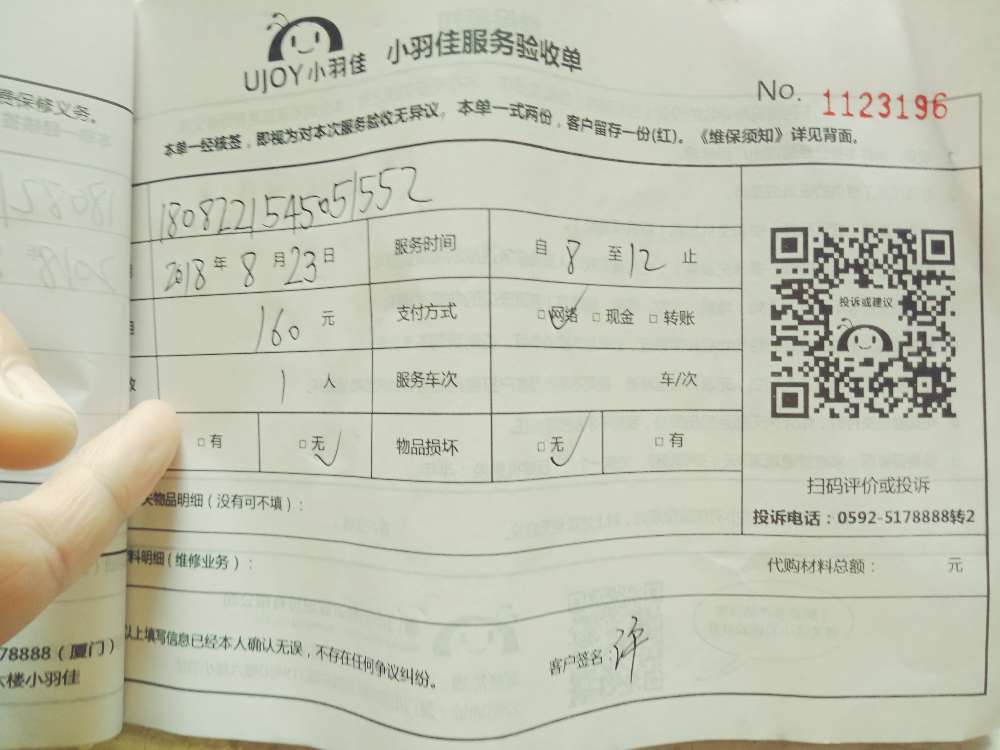 UJOY小羽佳 小羽佳服务验收单
No. 1123196
本单一经核签，即视为对本次服务验收无异议。本单一式两份，客户留存一份(红)。《维保须知》详见背面。
费保修义务。
1808221545051552
2018年8月23日 服务时间 自8至12止
160元 支付方式 □网络 □现金 □转账
1人 服务车次 车/次
□有 □无 物品损坏 □无 □有
投诉或建议
扫码评价或投诉
投诉电话：0592-5178888转2
物品明细（没有可不填）：
料明细（维修业务）： 代购材料总额： 元
以上填写信息已经本人确认无误，不存在任何争议纠纷。 客户签名：许
78888（厦门）
楼小羽佳